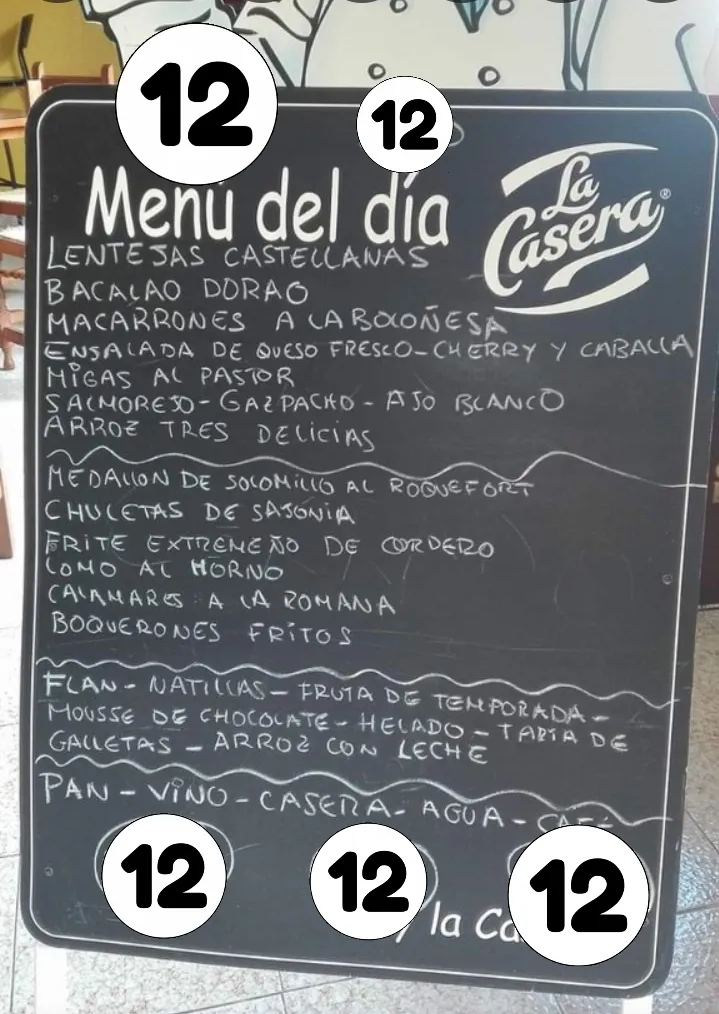 12
12
Menú del día
La
Casera®
LENTEJAS CASTELLANAS
BACALAO DORAO
MACARRONES A LA BOLOÑESA
ENSALADA DE QUESO FRESCO-CHERRY Y CABALLA
MIGAS AL PASTOR
SALMOREJO-GAZPACHO-AJO BLANCO
ARROZ TRES DELICIAS
MEDALLON DE SOLOMILLO AL ROQUEFORT
CHULETAS DE SAJONIA
FRITE EXTREMEÑO DE CORDERO
LOMO AL HORNO
CALAMARES A LA ROMANA
BOQUERONES FRITOS
FLAN - NATILLAS - FRUTA DE TEMPORADA -
MOUSSE DE CHOCOLATE - HELADO - TARTA DE
GALLETAS - ARROZ CON LECHE
PAN - VINO - CASERA - AGUA - CAFÉ
12
12
12
y la Ca